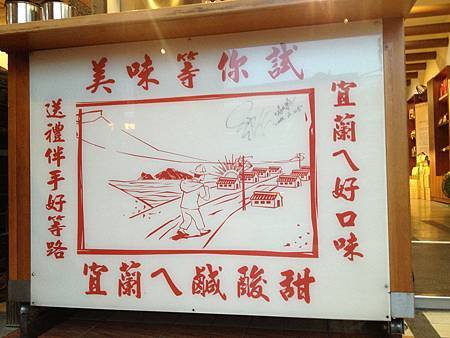 美味等你試
宜蘭ㄟ好口味
送禮伴手好等路
宜蘭ㄟ鹹酸甜